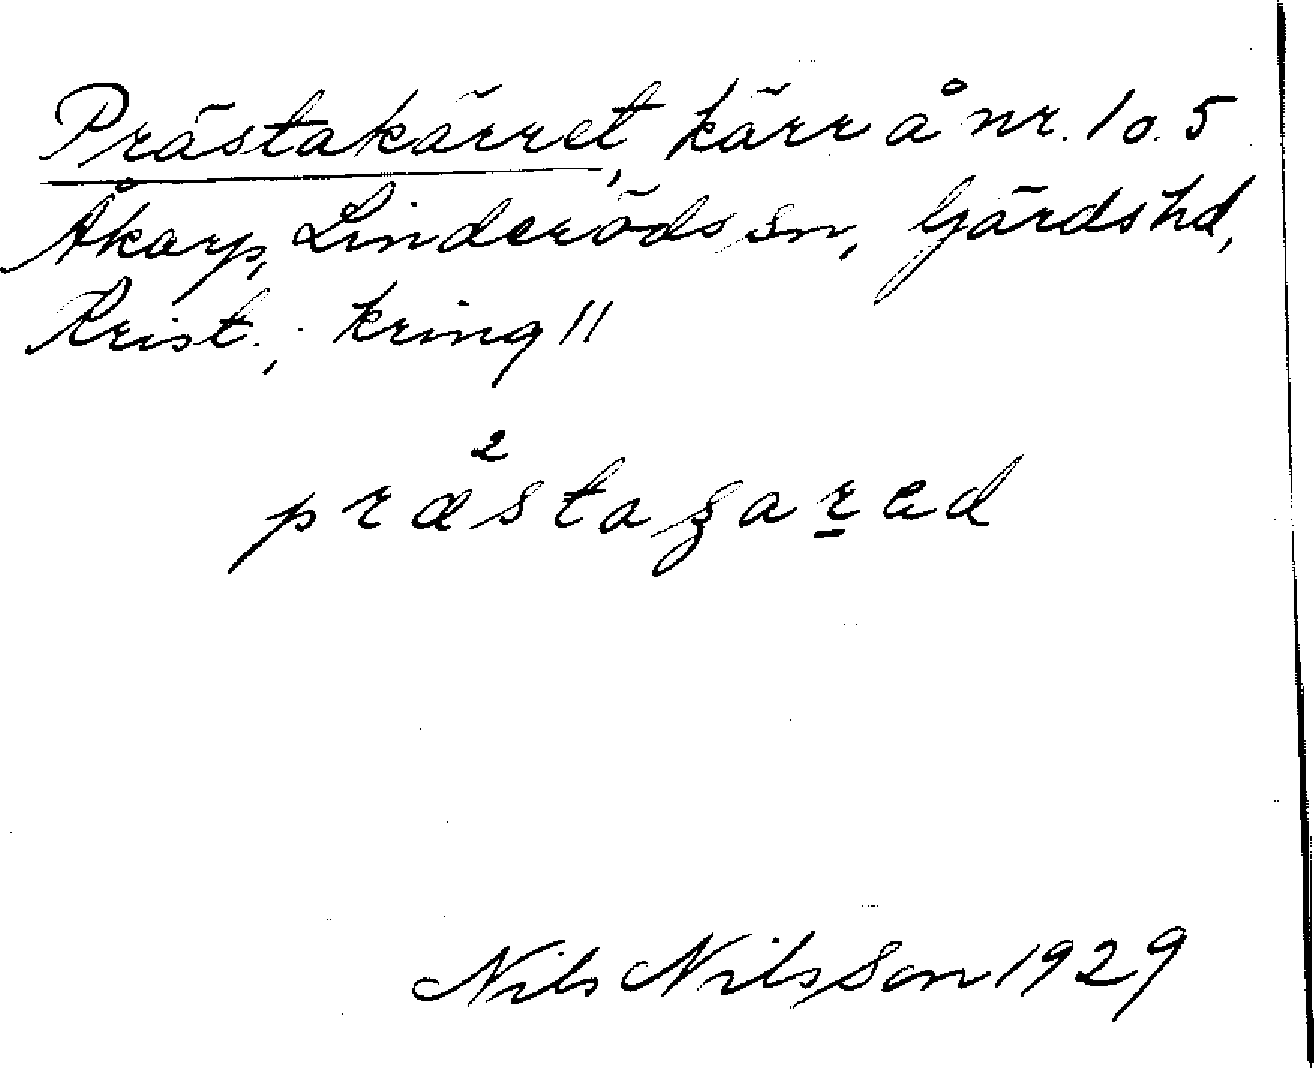 Prästakärret, kärr å nr. 1 o. 5
Åkarp, Linderöds sn, Gärds hd,
Krist.; kring 11
præ²stagared
Nils Nilsson 1929